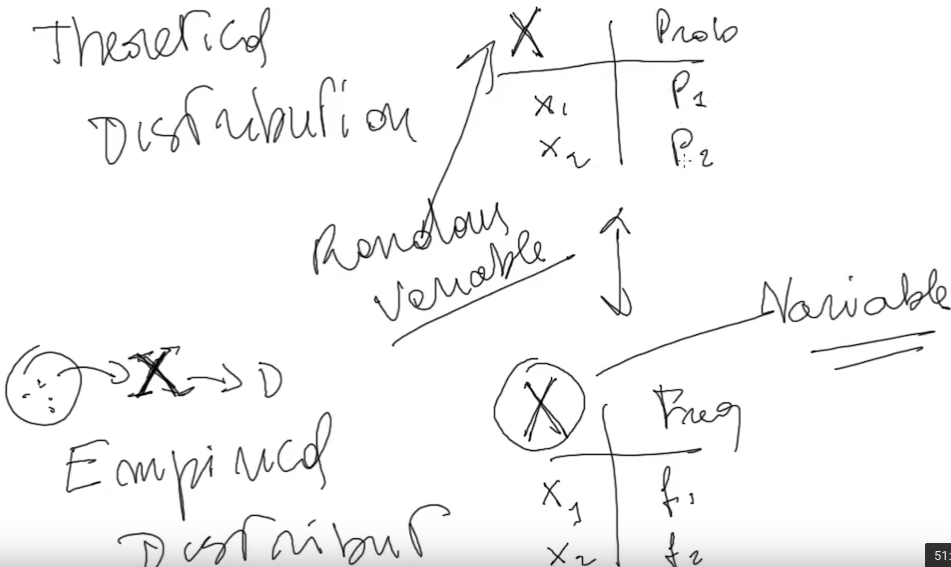 Theoretical
Distribution
X Prob
x1 P1
x2 P2
Random
Variable
Variable
X → D
Empirical
Distribut
X Freq
x1 f1
x2 f2
51: